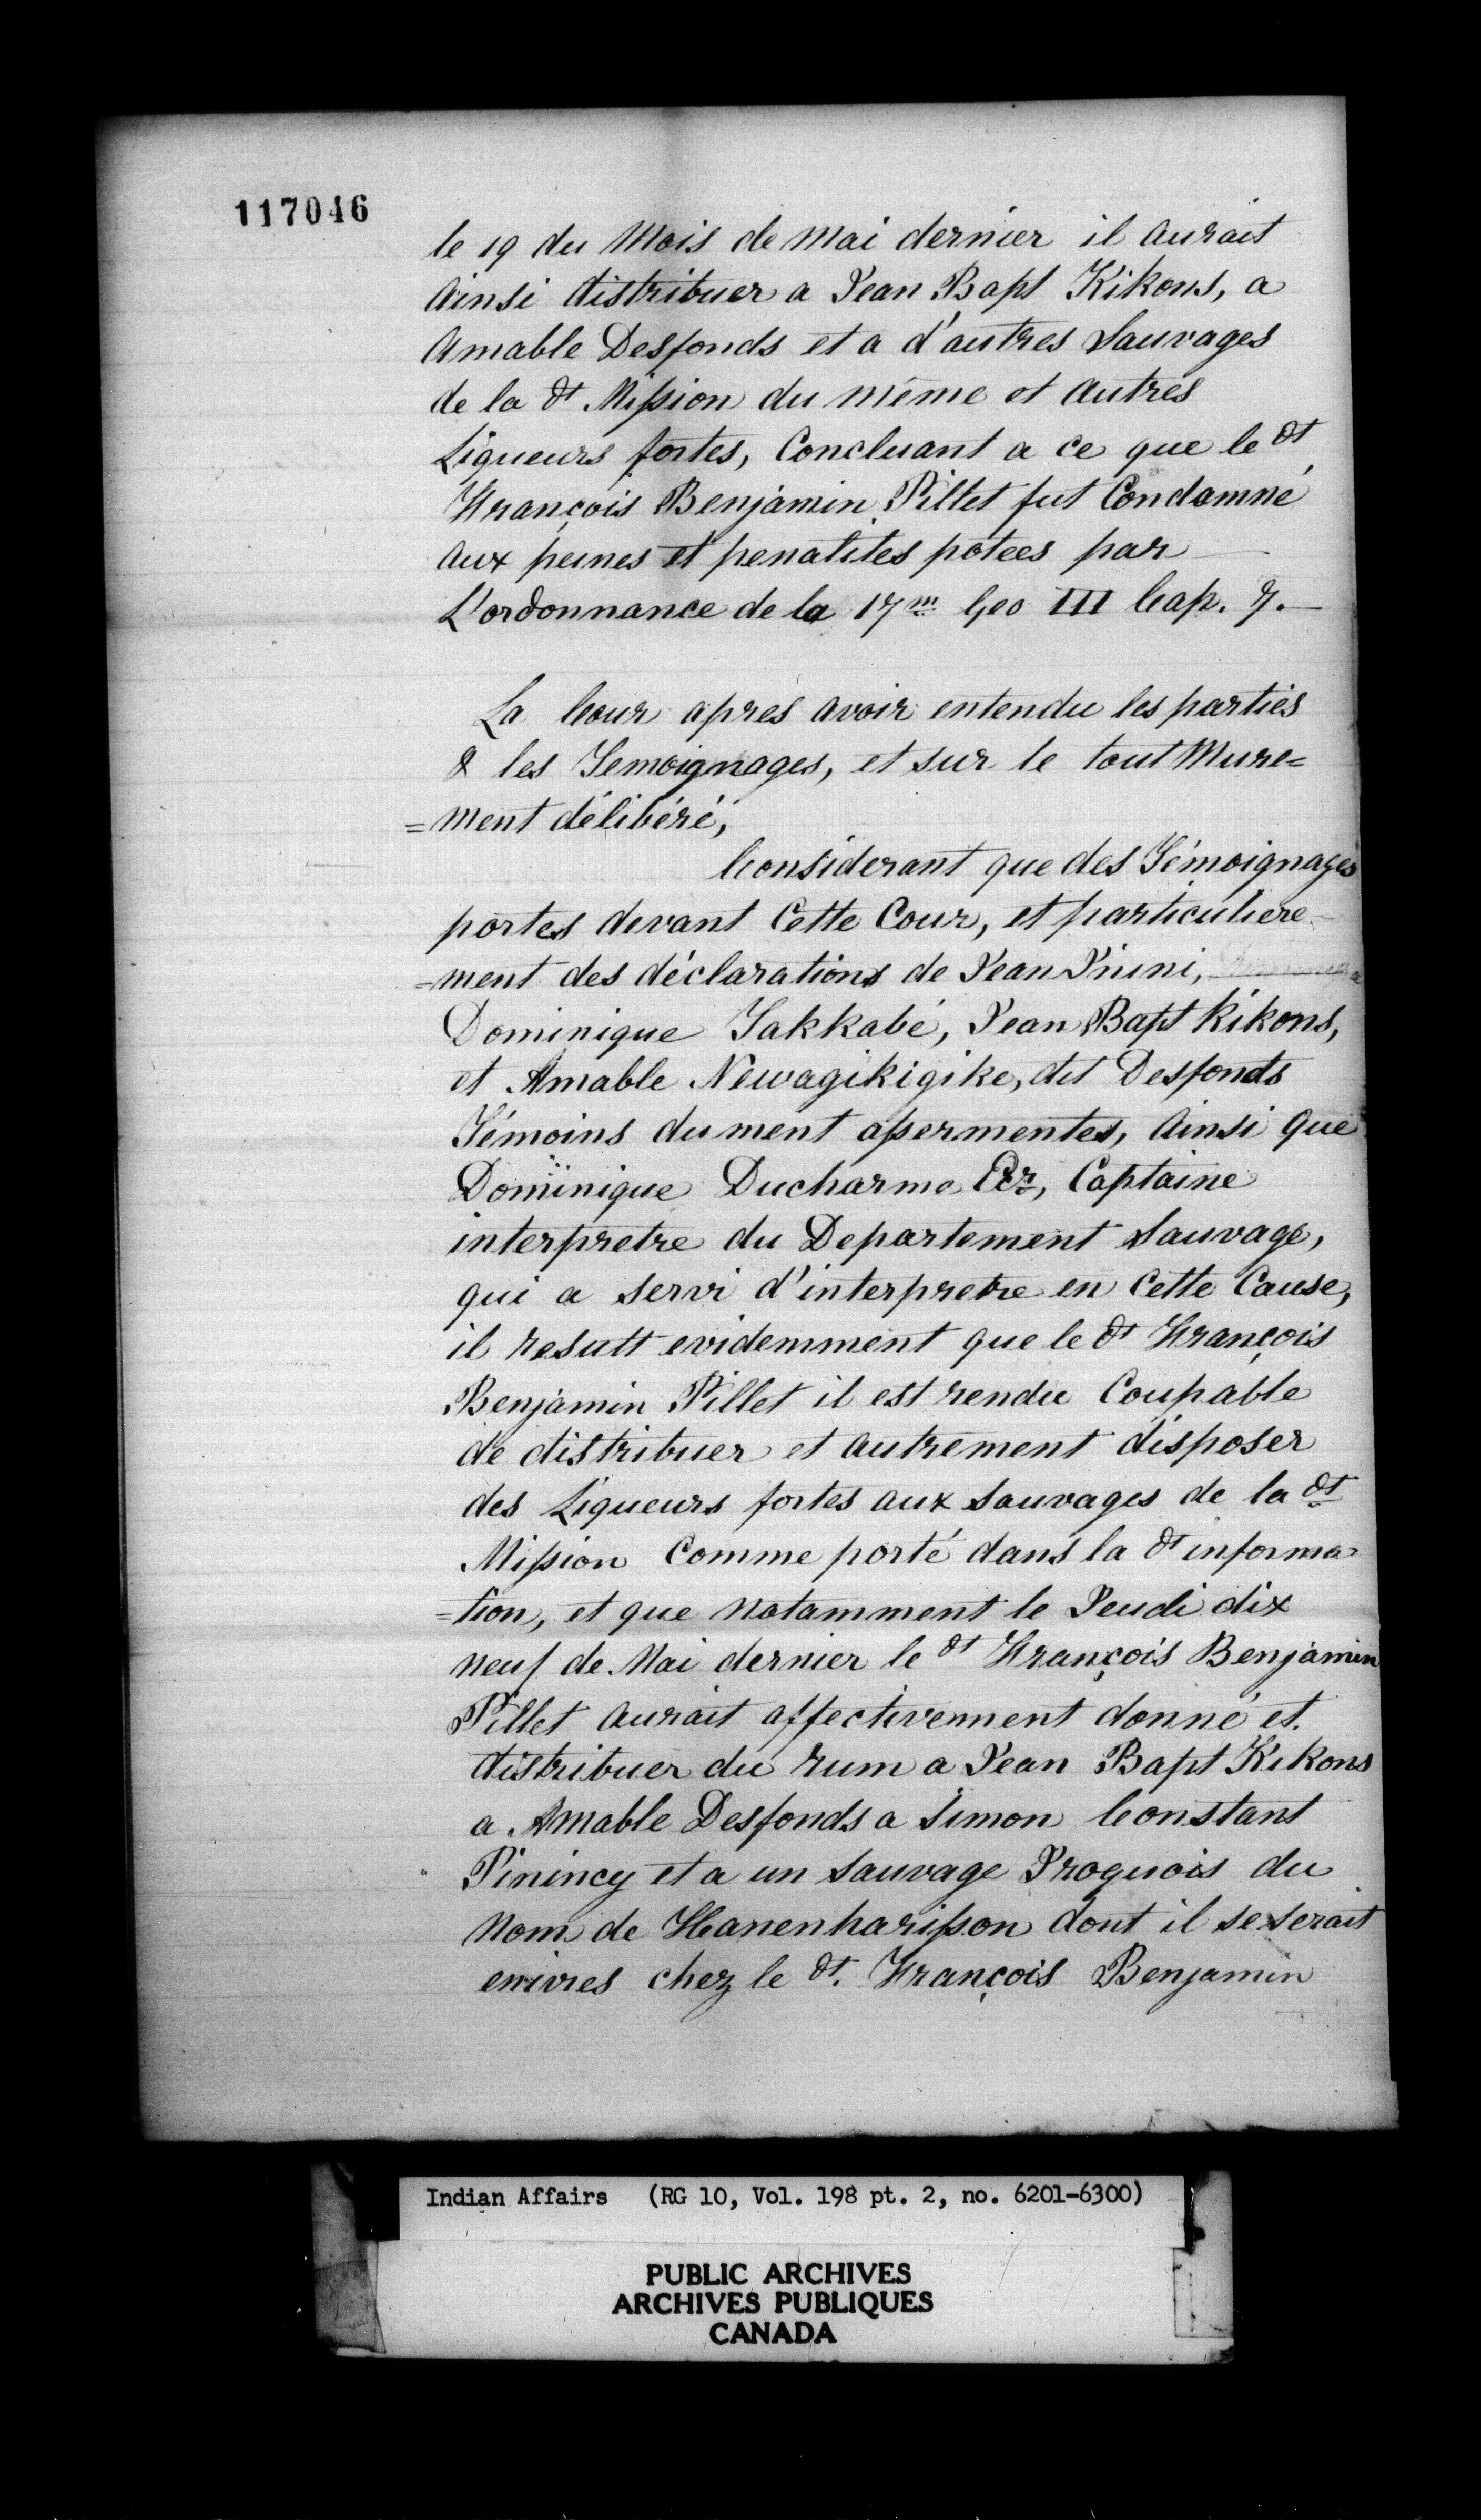 117046
le 19 du Mois de Mai dernier il aurait
ainsi distribuer a Jean Bapt Kikons, a
Amable Desfonds et a d'autres Sauvages
de la dt Mission du même et autres
Liqueurs fortes, Concluant a ce que le dt
François Benjamin Pillet fut Condamné
aux peines et penalites potees par
L'ordonnance de la 17m Geo III Cap. 7.
La Cour apres avoir entendu les parties
& les Temoignages, et sur le tout Mure=
=ment délibéré,
Considerant que des Témoignages
portes devant Cette Cour, et particuliere
=ment des déclarations de Jean Pinini,
Dominique Yakkabé, Jean Bapt Kikons,
et Amable Newagikigike, dit Desfonds
Témoins dument assermentes, ainsi que
Dominique Ducharme Ecr, Captaine
interpretre du Departement Sauvage,
qui a servi d'interpretre en Cette Cause,
il result evidemment que le dt François
Benjamin Pillet il est rendu Coupable
de distribuer et autrement disposer
des Liqueurs fortes aux Sauvages de la dt
Mission Comme porté dans la dt informa
=tion, et que notamment le Jeudi dix
neuf de Mai dernier le dt François Benjamin
Pillet aurait affectivement donné et
distribuer du rum a Jean Bapt Kikons
a Amable Desfonds a Simon Constant
Pinincy et a un Sauvage Iroquois du
Nom de Hanenharisson dont il se serait
enivres chez le dt. François Benjamin
Indian Affairs (RG 10, Vol. 198 pt. 2, no. 6201-6300)
PUBLIC ARCHIVES
ARCHIVES PUBLIQUES
CANADA